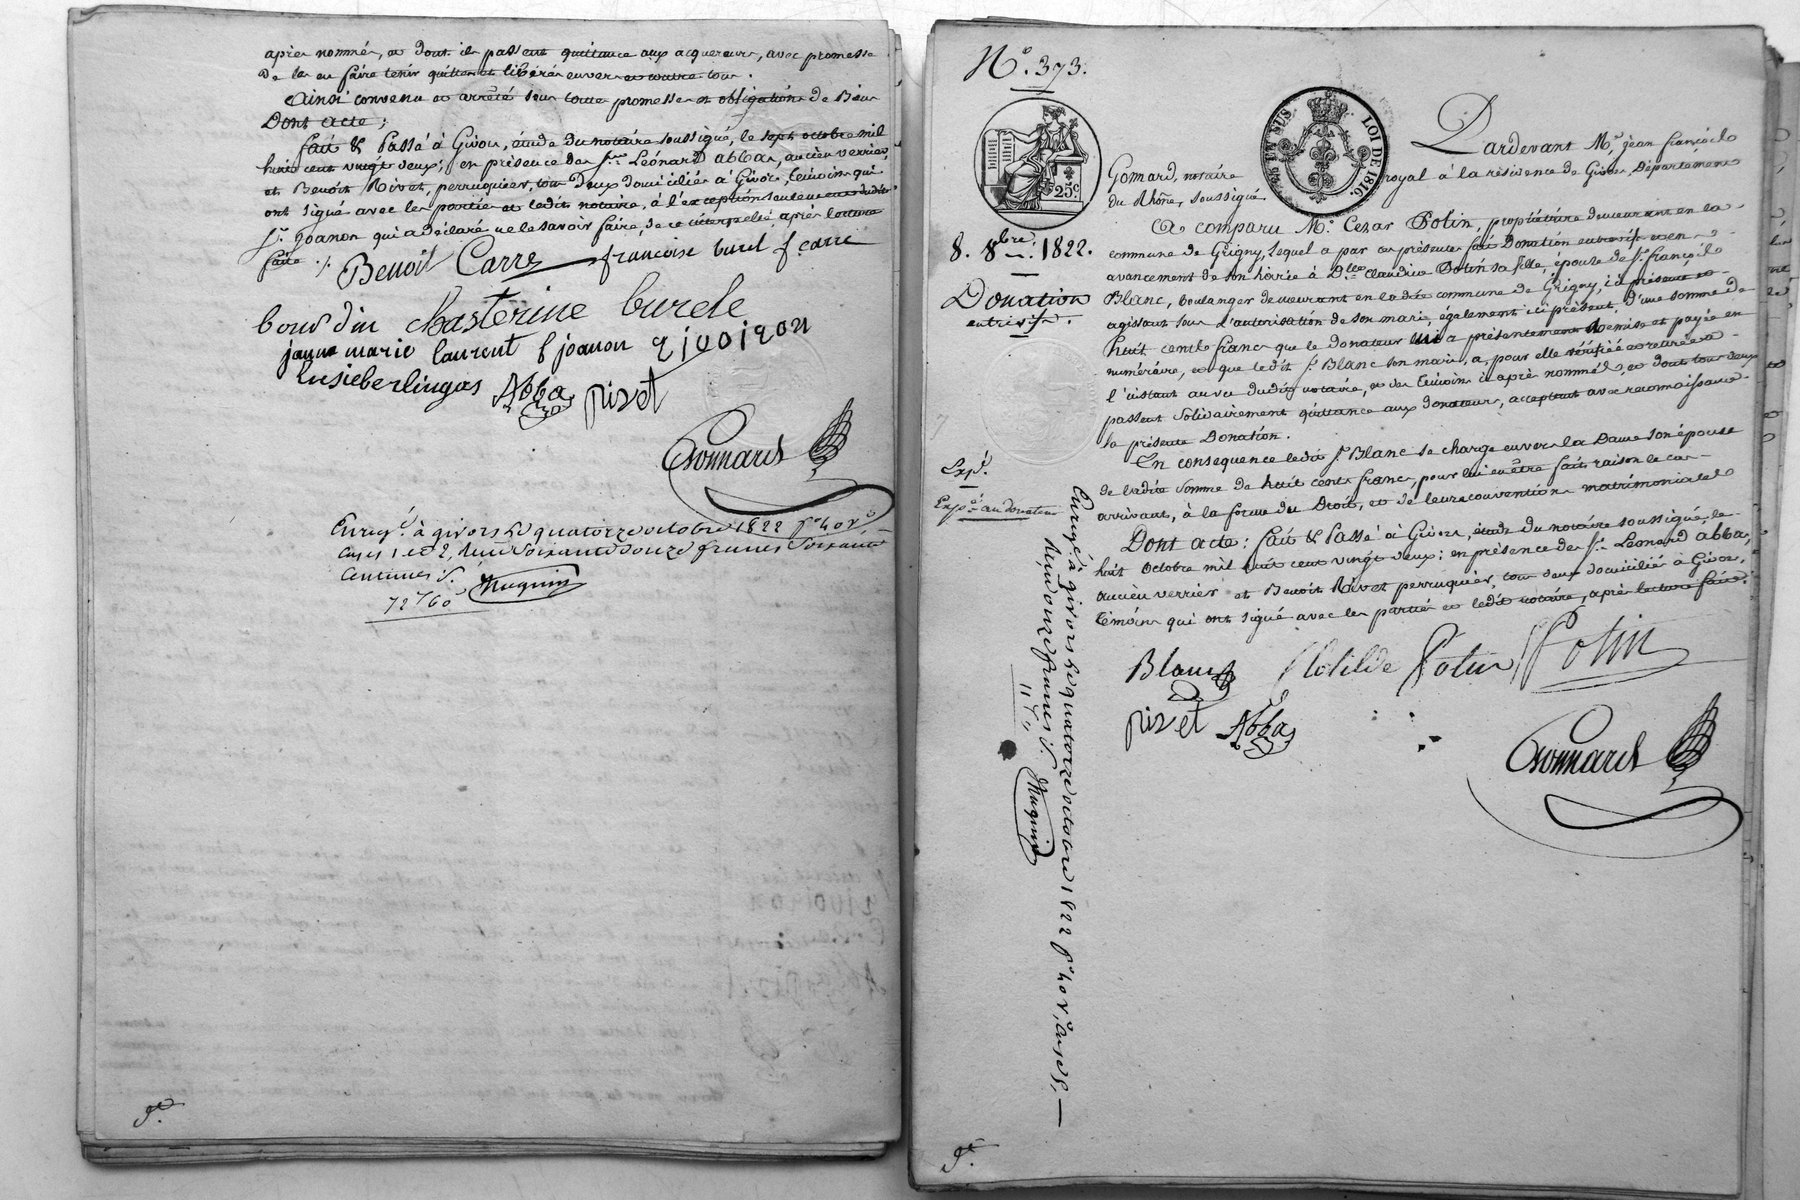 après nommés, et dont ils passent quittance aux acquereurs, avec promesse
de les en faire tenir quittes et libérés envers et contre tous.
Ainsi convenu et arrêté sous toutes promesses et obligations de Biens
Dont acte;
fait & Passé à Givors, étude du notaire soussigné, le sept octobre mil
huit cent vingt deux; en présence des Srs Leonard abbas, ancien verrier,
et Benoit Rivet, perruquier, tous deux domiciliés à Givors, témoins qui
ont signé avec les parties et ledit notaire, à l'exception seulement dudit
Sr Joanon qui a déclaré ne le savoir faire, de ce interpellé, après lecture
faite ./.
Benoit Carre francoise burel f carre
bourdin chasterine burele
janne marie laurent f joanon
Abbas pivet
Gomard
Enregé à givors le quatorze octobre 1822 fo 40 Vo
Cases 1 et 2, Reçu Soixante douze francs Soixante
Centimes S.
72f 60c
Muguin
No. 373.
25c
EN SUS.
LOI DE 1816.
Pardevant Me. jean françois
Gomard, notaire royal à la résidence de Givors, Département
du Rhône, soussigné.
8. 8bre. 1822.
Donation
entrevifs.
A comparu Mr. Cezar Potin, propriétaire demeurant en la
commune de Grigny, lequel a par ces présentes fait Donation entrevifs et en
avancement de son hoirie à Dlle Claudine Potin sa fille, épouse de Sr. françois
Blanc, boulanger demeurant en ladite commune de Grigny, ici présente et
agissant sous l'autorisation de son mari, également ici présent, d'une somme de
huit cents francs que le donateur lui a présentement Remise et payée en
numéraire, et que ledit Sr Blanc son mari, a, pour elle vérifiée et retirée à
l'instant au vu dudit notaire, et des témoins ci après nommés, et dont tous deux
passent solidairement quittance aux donateurs, acceptant avec reconnaissance
la présente Donation.
En conséquence ledit Sr Blanc se charge envers la Dame son épouse
de ladite somme de huit cents francs, pour lui en être fait raison le cas
arrivant, à la forme du Droit, et de leurs conventions matrimoniales
Dont acte: fait & Passé à Givors, étude du notaire soussigné, le
huit Octobre mil huit cent vingt deux; en présence des Srs Leonard abbas,
ancien verrier et Benoit Rivet perruquier, tous deux domiciliés à Givors,
témoins qui ont signé avec les parties et ledit notaire, après lecture faite.
Expé.
Expé. au donateur
Enregé à givors le quatorze octobre 1822 fo 40 Vo, case 5,
Reçu onze francs S.
11f
Muguin
Blanc Clotilde Potin Potin
pivet Abbas
Gomard